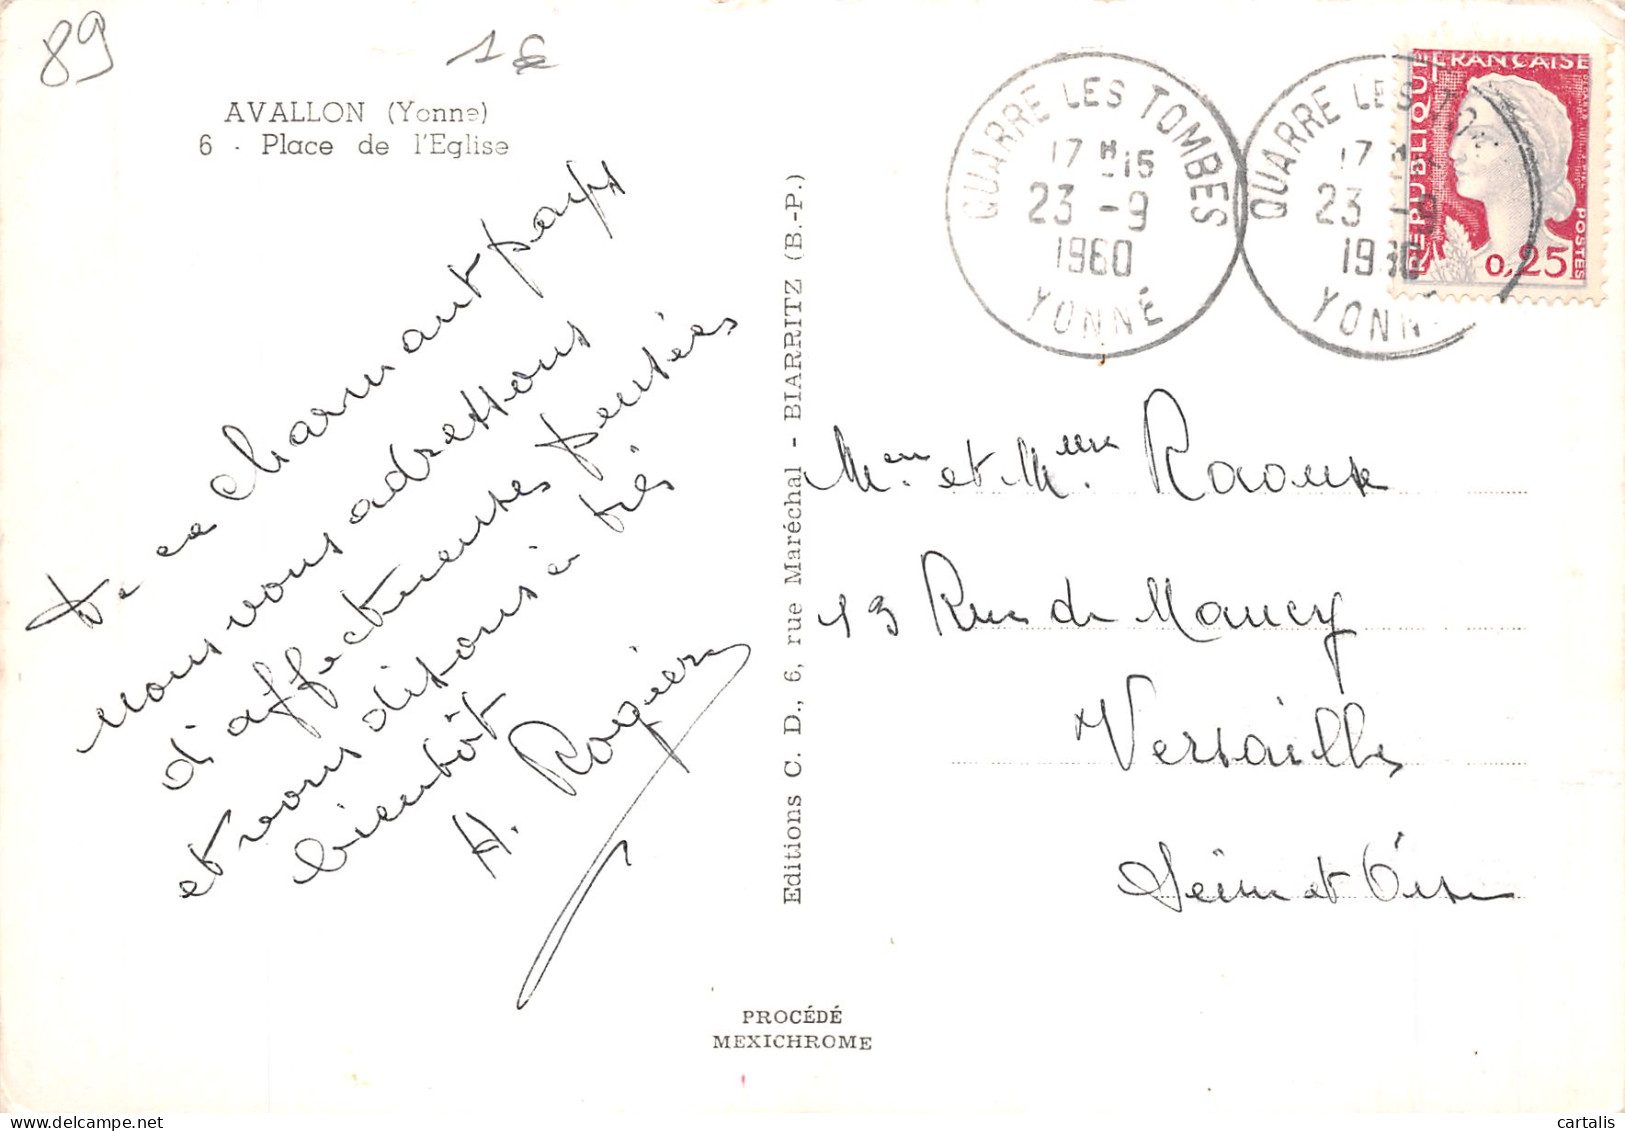 89
1€
AVALLON (Yonne)
6 - Place de l'Eglise
De ce charmant pays
nous vous adressons
d'affectueuses pensées
et vous disons à très
bientôt
H. Rogier
Editions C. D., 6, rue Maréchal - BIARRITZ (B.-P.)
PROCÉDÉ
MEXICHROME
QUARRE LES TOMBES
17 H 15
23 -9
1960
YONNE
QUARRE LES
17 H
23 -9
1960
YONN
REPUBLIQUE FRANÇAISE
POSTES
0,25
et
13 Rue de
Versailles
Seine et Oise
cartalis.com